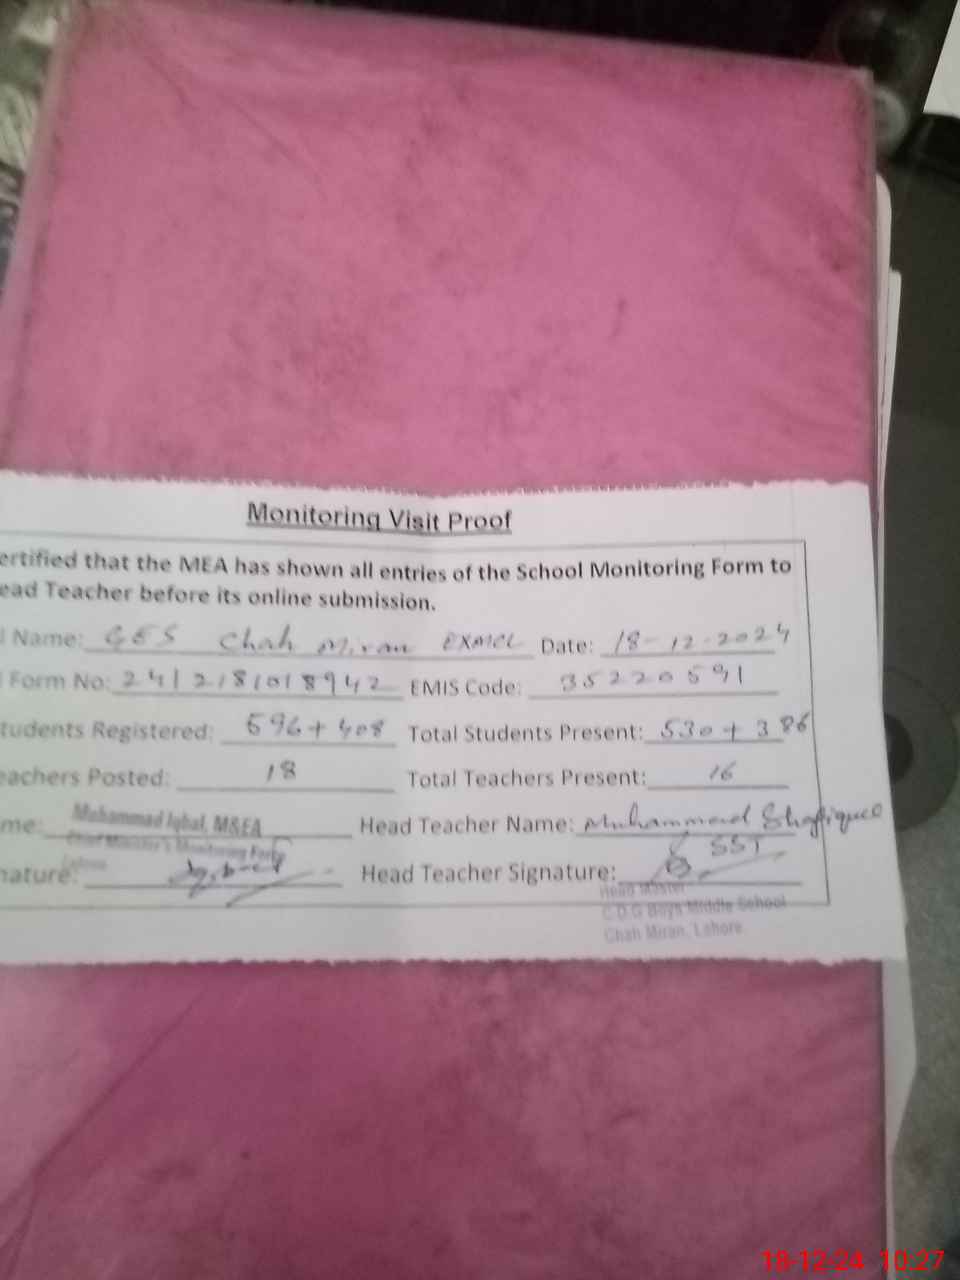 Monitoring Visit Proof
ertified that the MEA has shown all entries of the School Monitoring Form to
ead Teacher before its online submission.
l Name: GES Chah Miran EXMCL Date: 18-12-2024
Form No: 2412181018942 EMIS Code: 35220591
tudents Registered: 596+408 Total Students Present: 530+386
eachers Posted: 18 Total Teachers Present: 16
me: Muhammad Iqbal, M&EA Head Teacher Name: Muhammad Shafique
Chief Minister's Monitoring Force SST
Lahore
nature: Head Teacher Signature:
Head Master
C.D.G Boys Middle School
Chah Miran, Lahore
18-12-24 10:27